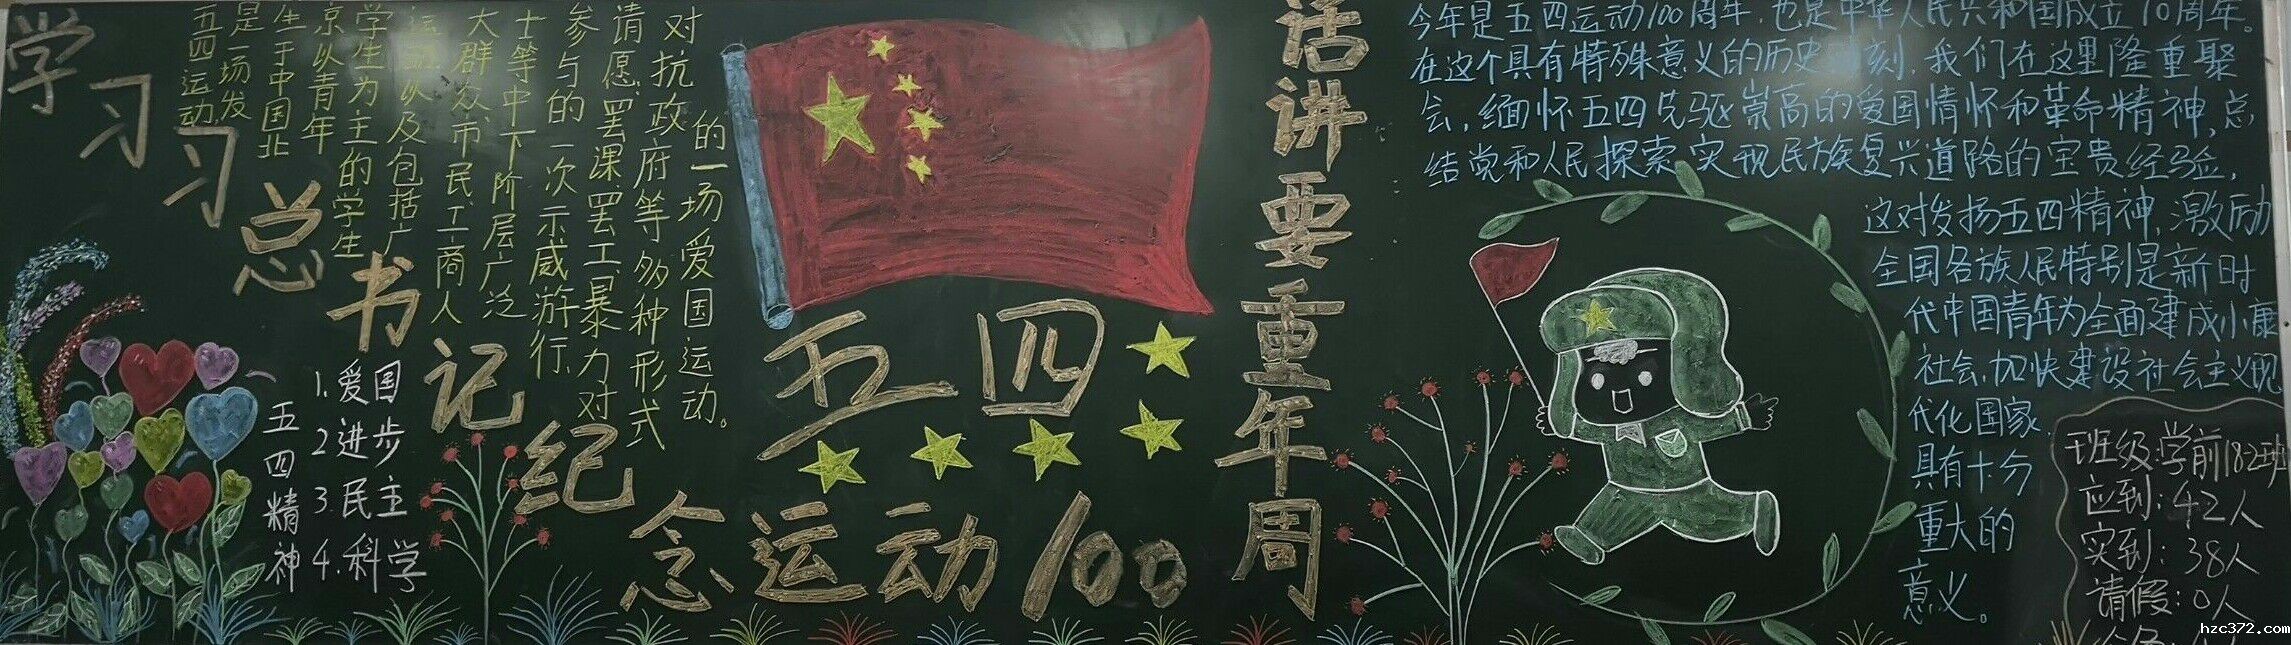 学习习总书记纪念
五四
运动100
周年重要讲话
五四运动,
是一场发
生于中国北
京以青年
学生为主的学生
运动以及包括广
大群众、市民、工商人
士等中下阶层广泛
参与的一次示威游行、
请愿、罢课、罢工、暴力对
对抗政府等多种形式
的一场爱国运动。
五四精神
1.爱国
2进步
3民主
4.科学
今年是五四运动100周年,也是中华人民共和国成立70周年。
在这个具有特殊意义的历史 刻,我们在这里隆重聚
会,缅怀五四先驱崇高的爱国情怀和革命精神,总
结党和人民探索实现民族复兴道路的宝贵经验,
这对发扬五四精神,激励
全国各族人民特别是新时
代中国青年为全面建成小康
社会,加快建设社会主义现
代化国家
具有十分
重大的
意义。
班级:学前18-2班
应到:42人
实到:38人
请假:0人
hzc372.com